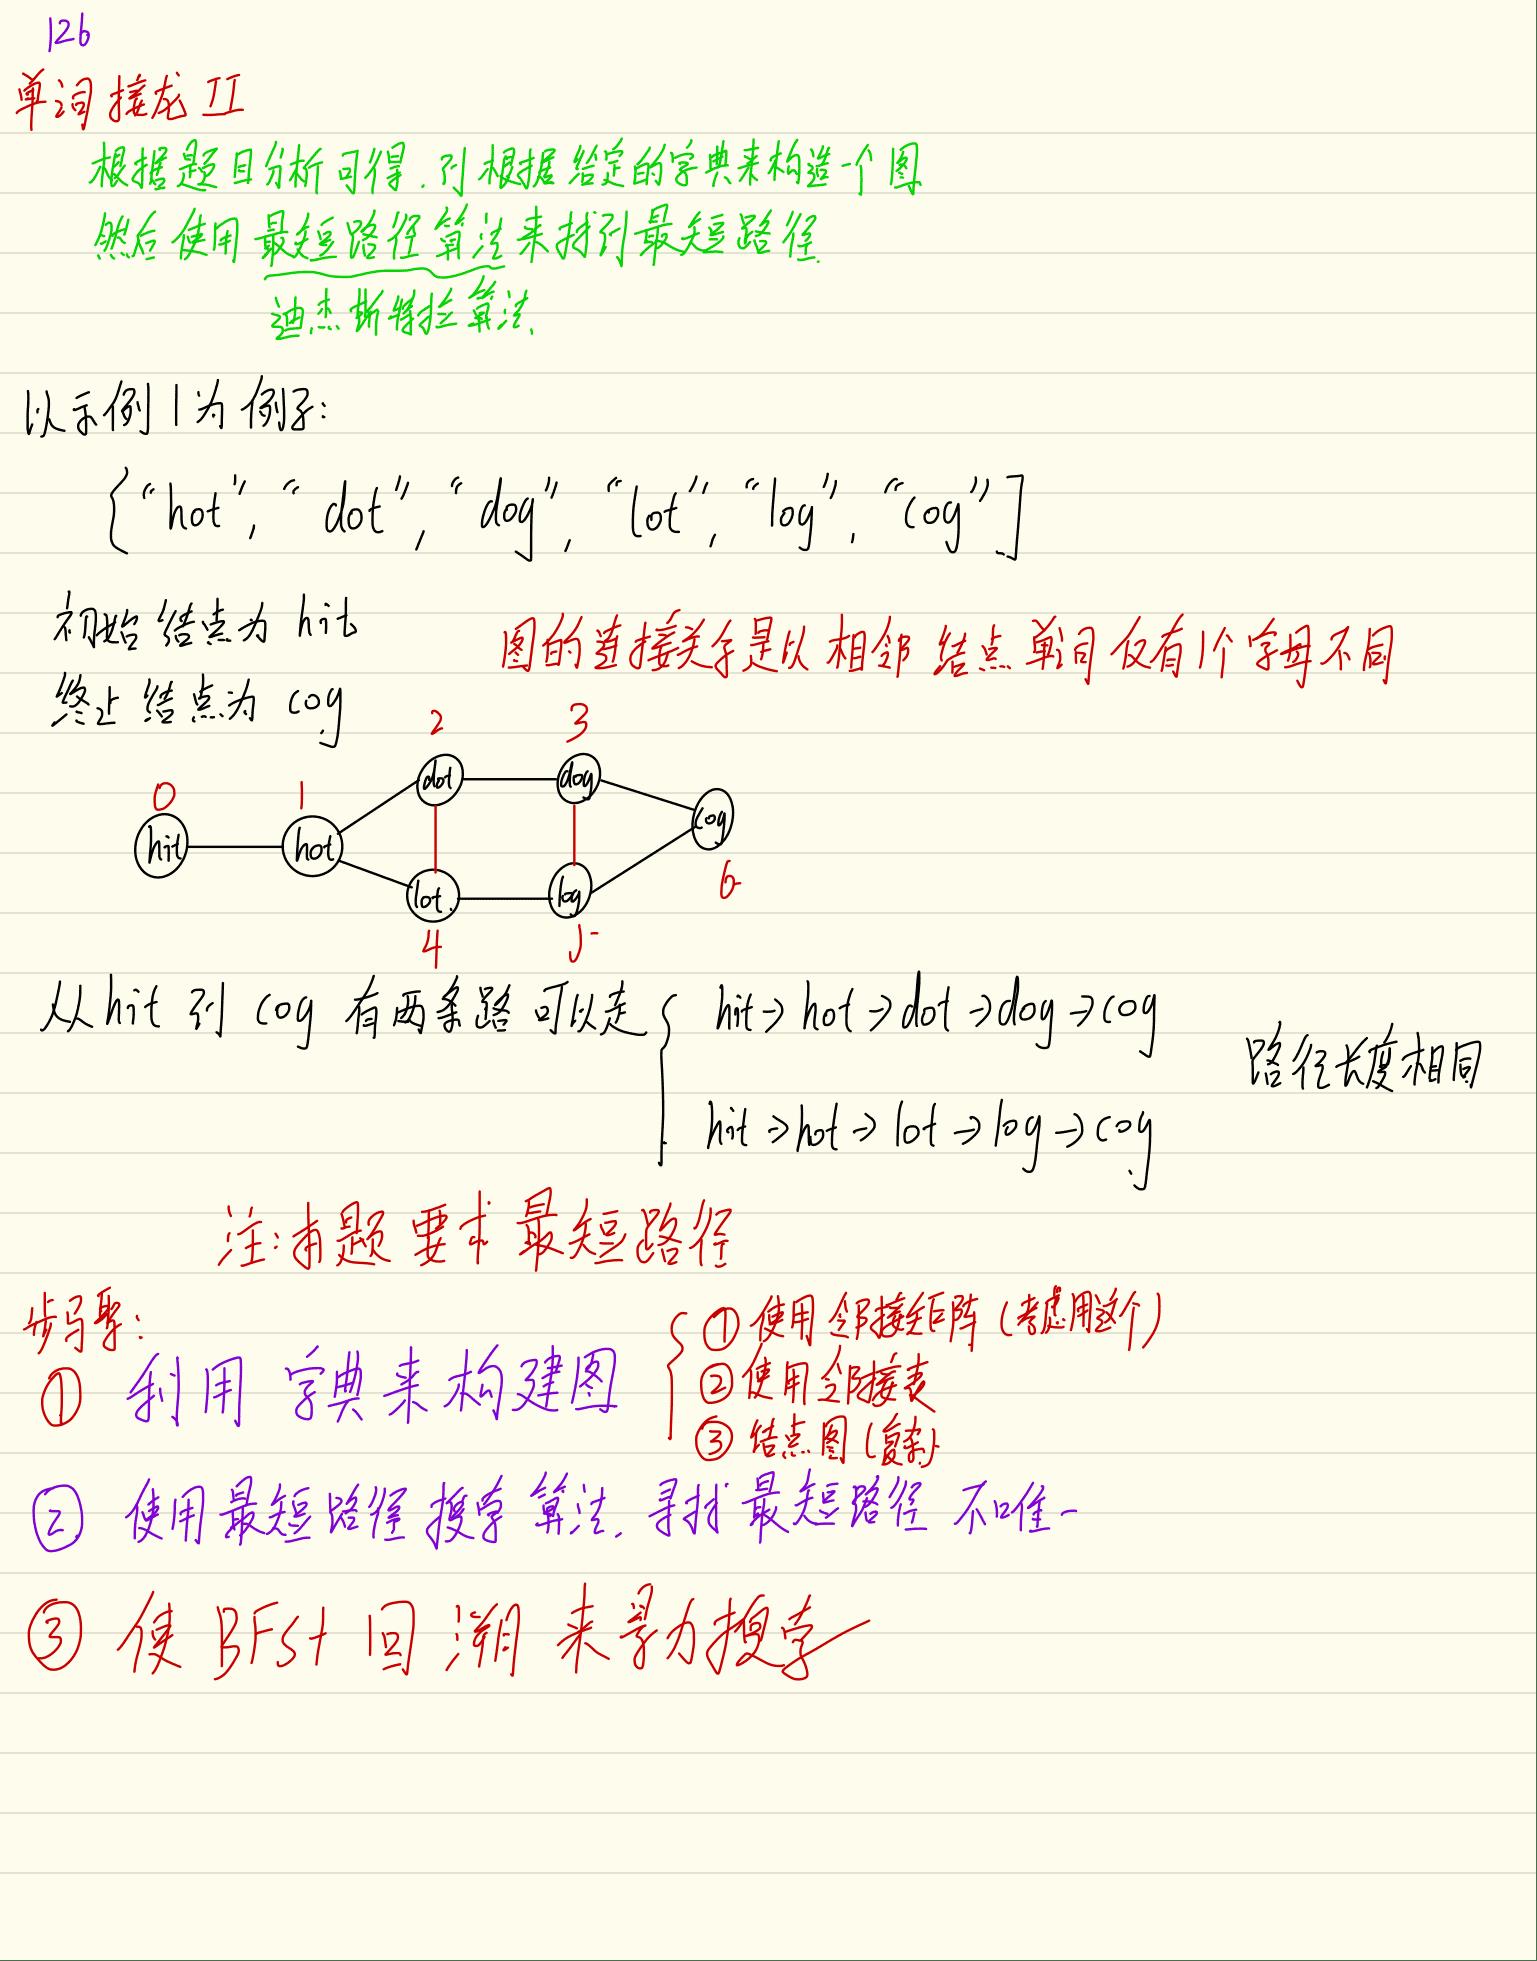 126
单词接龙 II
根据题目分析可得.可根据给定的字典来构造一个图
然后使用最短路径算法来找到最短路径.
迪杰斯特拉算法.
以示例1为例子:
{“hot”, “dot”, “dog”, “lot”, “log”, “cog”]
初始结点为 hit
图的连接关系是以相邻结点单词仅有1个字母不同
终止结点为 cog
2 3
dot dog
0 1
cog
hit hot
6
lot. log
4 5
从hit 到 cog 有两条路可以走
hit→hot→dot→dog→cog
路径长度相同
hit→hot→lot→log→cog
注:本题要求最短路径
步骤:
① 使用邻接矩阵(考虑用这个)
① 利用字典来构建图
② 使用邻接表
③ 结点图(复杂)
② 使用最短路径搜索算法.寻找最短路径不唯一
③ 使BFS+回溯来暴力搜索